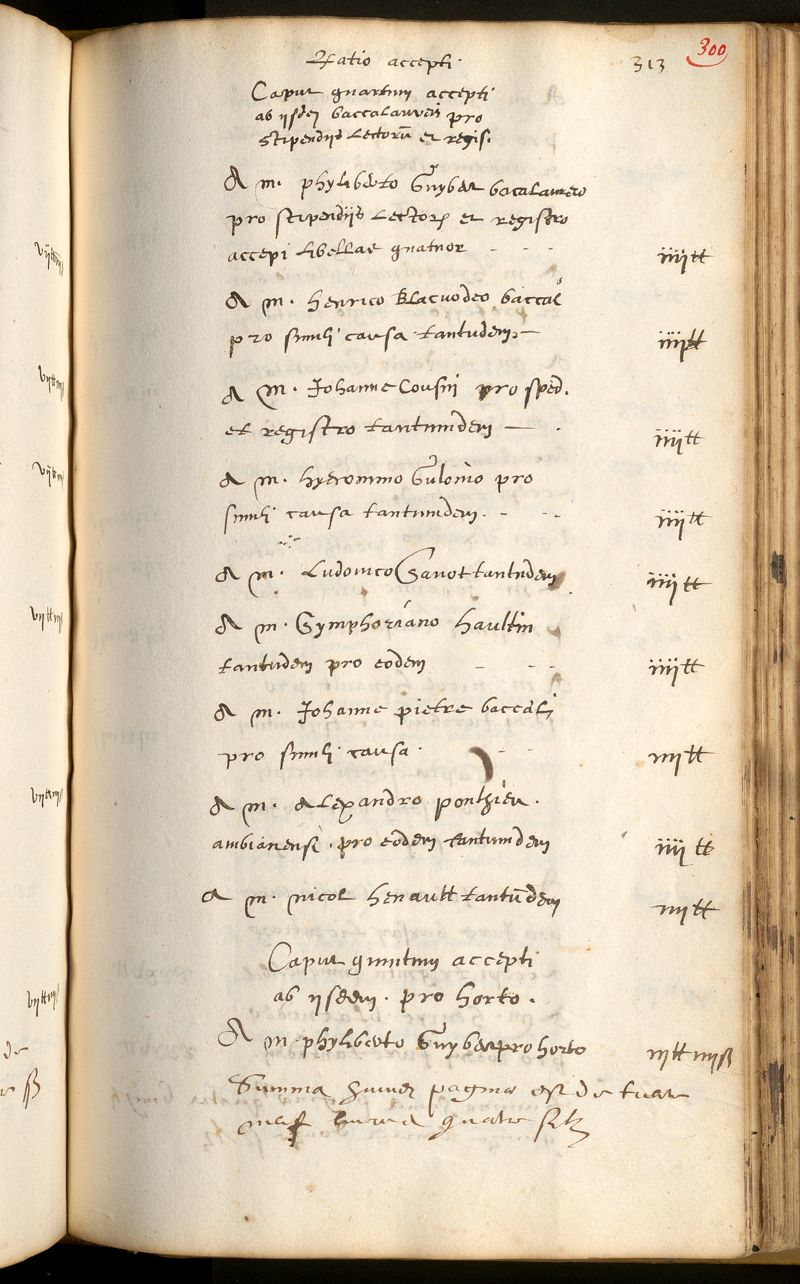 Ratio accepti. 313 300
Caput quartum accepti
ab iisdem baccalaureis pro
stipendiis Lectorũ et regis.
A m. phyliberto Guybert bacalaureo
pro stipendiis Lectorꝝ et registro
accepi libellas quatuor - - - iiii ₶
A m. Henrico Blacvodeo baccal
pro simili causa tantudem. — iiii ₶
A m. Johanne Cousin pro sped.
et registro tantumdem — . iiii ₶
A m. Hyeronimo Gulonio pro
simili causa tantumdem. - - - iiii ₶
A m. Ludovico Savot tantudem iiii ₶
A m. Symphoriano Haultin
tantudem pro eodem - - - iiii ₶
A m. Johanne pietre baccali
pro simili causa. - - iiii ₶
A m. Alexandro ponthieu.
ambianensi. pro eodem tantumdem iiii ₶
A m. nicol Henault tantũdem iiii ₶
Caput quintum accepti
ab iisdem. pro horto.
A m. phyliberto Guybert pro horto iii ₶ iiii ß
Summa huius pagina est de trente
neuf livres quatre solz
vii ₶
vii ₶
vii ₶
vii ₶
vii ₶
vii ₶
de
ß